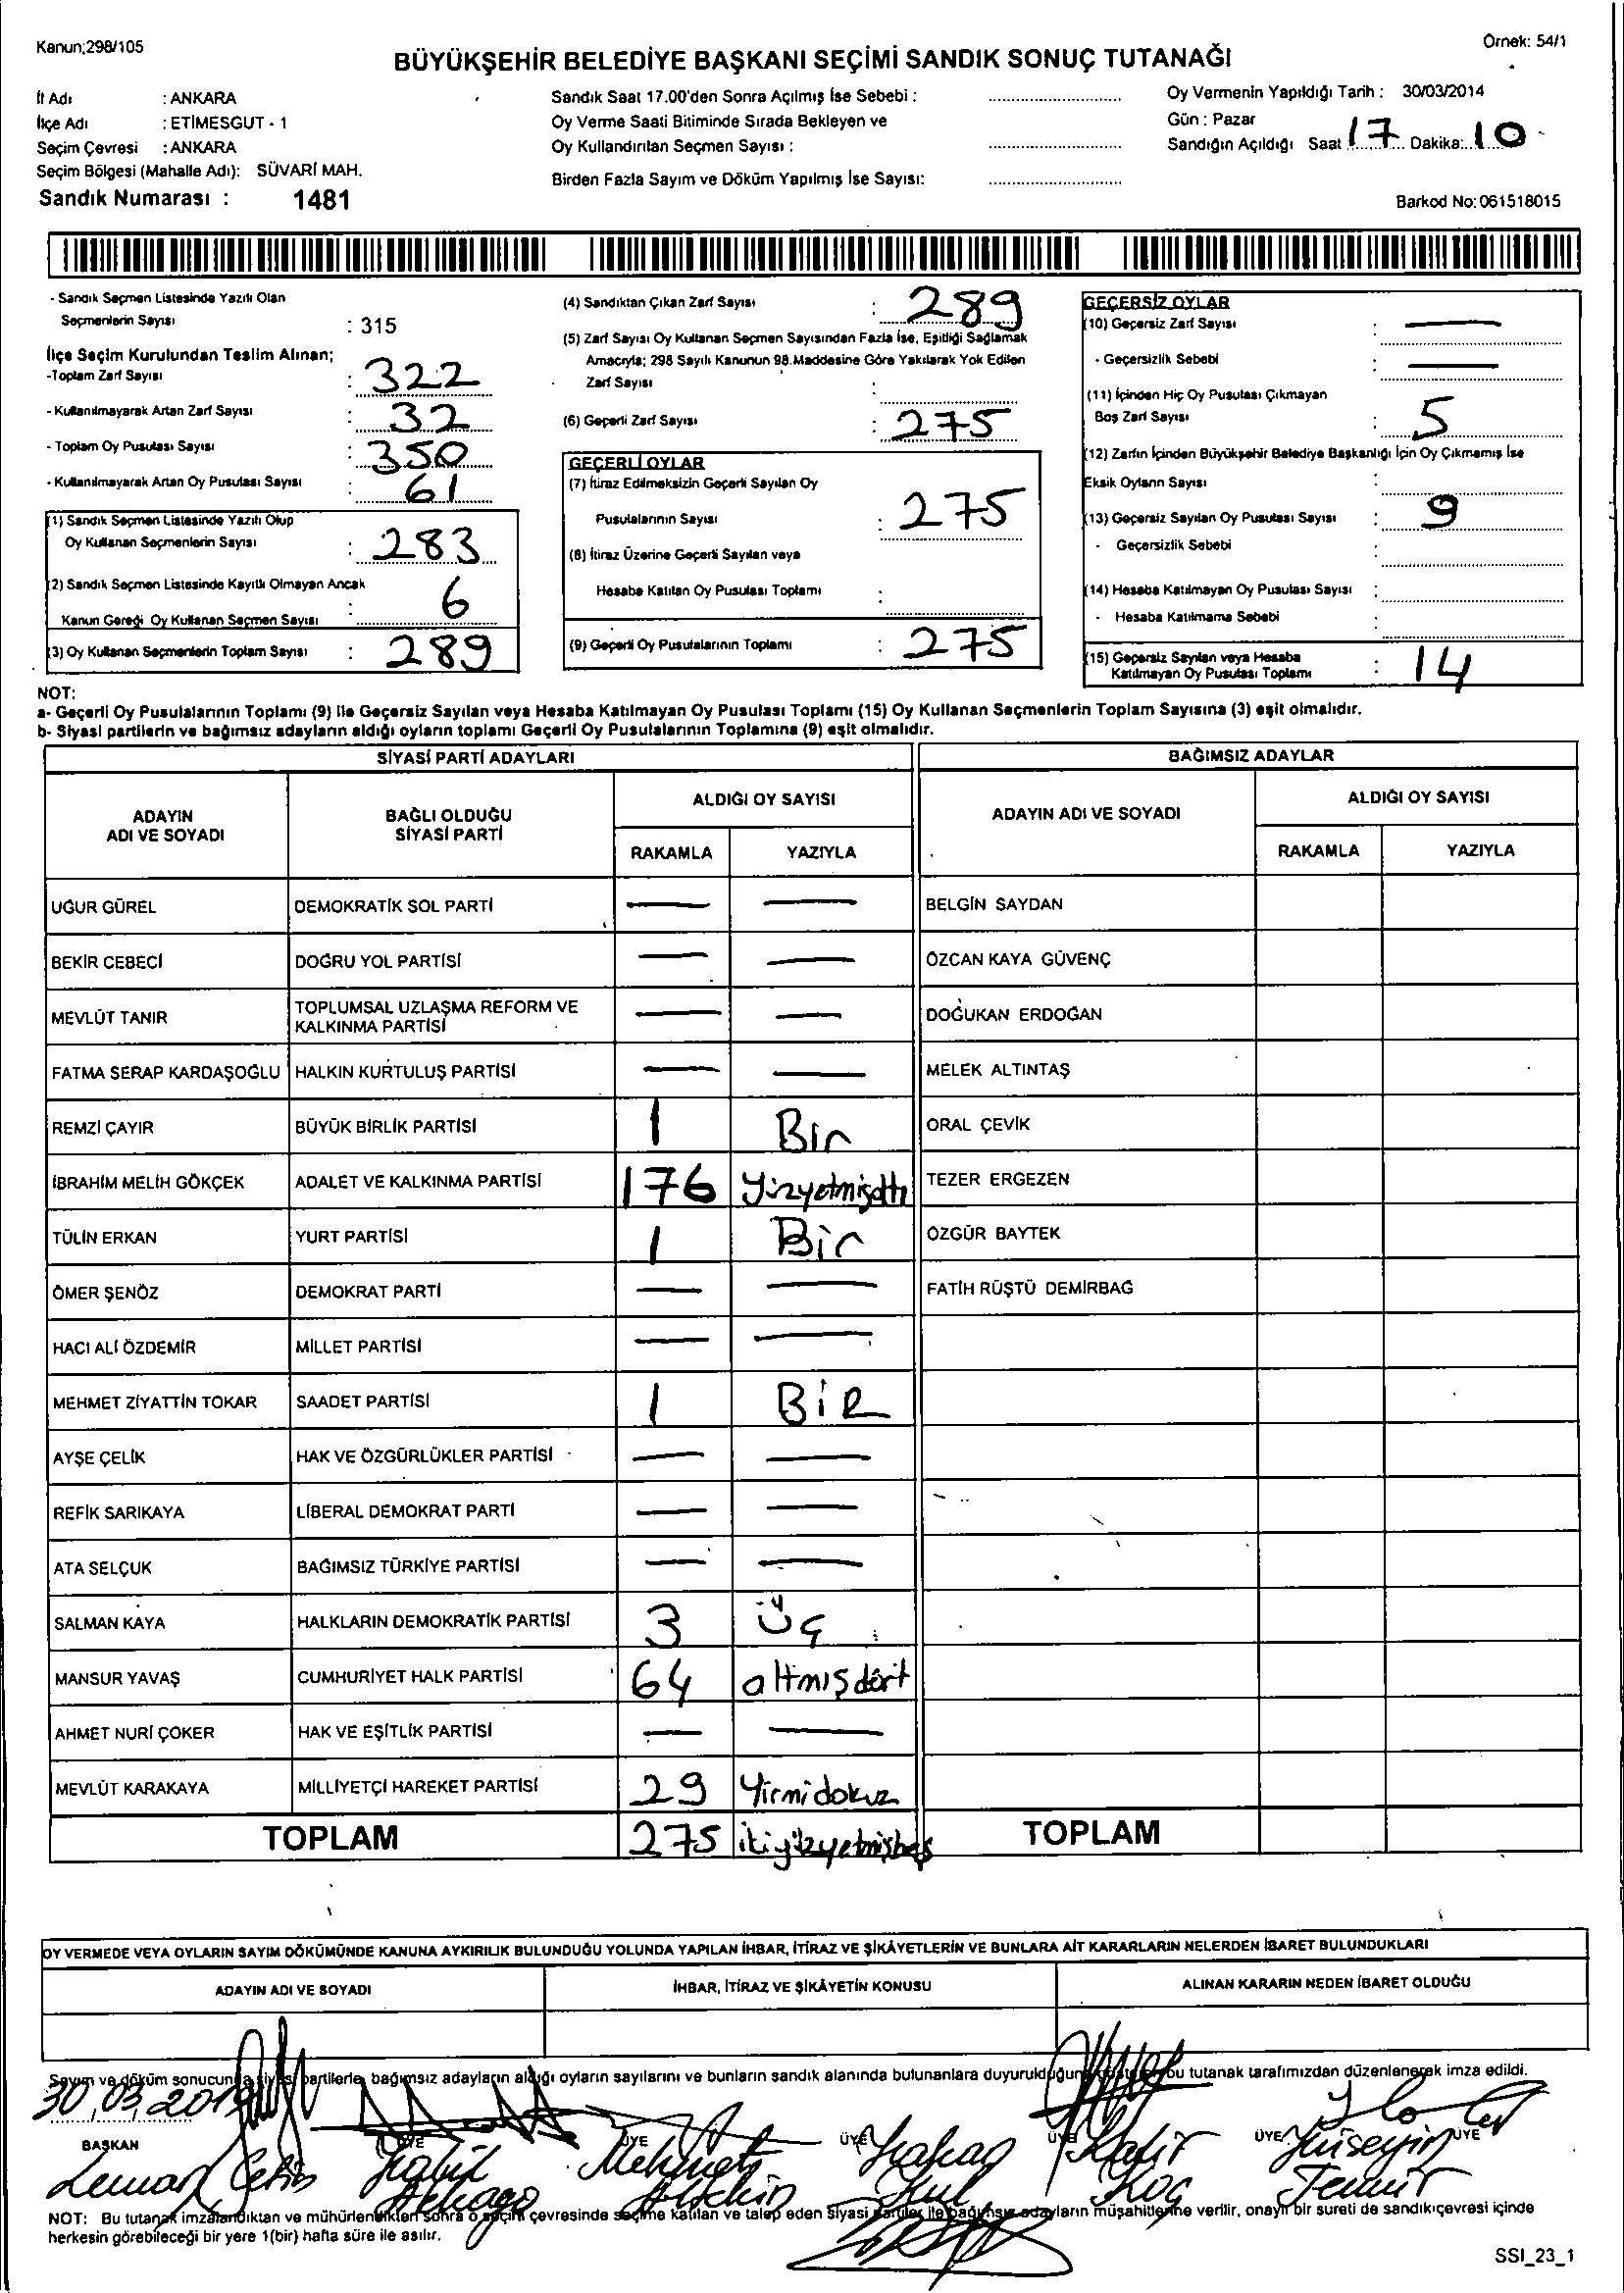 Kanun;298/105
Örnek: 54/1
BÜYÜKŞEHİR BELEDİYE BAŞKANI SEÇİMİ SANDIK SONUÇ TUTANAĞI
İl Adı : ANKARA
İlçe Adı : ETİMESGUT - 1
Seçim Çevresi : ANKARA
Seçim Bölgesi (Mahalle Adı): SÜVARİ MAH.
Sandık Numarası : 1481
Sandık Saat 17.00'den Sonra Açılmış İse Sebebi :
Oy Verme Saati Bitiminde Sırada Bekleyen ve
Oy Kullandırılan Seçmen Sayısı :
Birden Fazla Sayım ve Döküm Yapılmış İse Sayısı:
Oy Vermenin Yapıldığı Tarih : 30/03/2014
Gün : Pazar
Sandığın Açıldığı Saat 17 Dakika: 10
Barkod No: 061518015
- Sandık Seçmen Listesinde Yazılı Olan
Seçmenlerin Sayısı : 315
İlçe Seçim Kurulundan Teslim Alınan;
-Toplam Zarf Sayısı : 322
- Kullanılmayarak Artan Zarf Sayısı : 32
- Toplam Oy Pusulası Sayısı : 350
- Kullanılmayarak Artan Oy Pusulası Sayısı : 61
(1) Sandık Seçmen Listesinde Yazılı Olup
Oy Kullanan Seçmenlerin Sayısı : 283
(2) Sandık Seçmen Listesinde Kayıtlı Olmayan Ancak
Kanun Gereği Oy Kullanan Seçmen Sayısı : 6
(3) Oy Kullanan Seçmenlerin Toplam Sayısı : 289
(4) Sandıktan Çıkan Zarf Sayısı : 289
(5) Zarf Sayısı Oy Kullanan Seçmen Sayısından Fazla İse, Eşitliği Sağlamak
Amacıyla; 298 Sayılı Kanunun 98.Maddesine Göre Yakılarak Yok Edilen
Zarf Sayısı :
(6) Geçerli Zarf Sayısı : 275
GEÇERLİ OYLAR
(7) İtiraz Edilmeksizin Geçerli Sayılan Oy
Pusulalarının Sayısı : 275
(8) İtiraz Üzerine Geçerli Sayılan veya
Hesaba Katılan Oy Pusulası Toplamı :
(9) Geçerli Oy Pusulalarının Toplamı : 275
GEÇERSİZ OYLAR
(10) Geçersiz Zarf Sayısı : —
- Geçersizlik Sebebi : —
(11) İçinden Hiç Oy Pusulası Çıkmayan
Boş Zarf Sayısı : 5
(12) Zarfın İçinden Büyükşehir Belediye Başkanlığı İçin Oy Çıkmamış İse
Eksik Oyların Sayısı :
(13) Geçersiz Sayılan Oy Pusulası Sayısı : 9
- Geçersizlik Sebebi :
(14) Hesaba Katılmayan Oy Pusulası Sayısı :
- Hesaba Katılmama Sebebi
(15) Geçersiz Sayılan veya Hesaba
Katılmayan Oy Pusulası Toplamı : 14
NOT:
a- Geçerli Oy Pusulalarının Toplamı (9) ile Geçersiz Sayılan veya Hesaba Katılmayan Oy Pusulası Toplamı (15) Oy Kullanan Seçmenlerin Toplam Sayısına (3) eşit olmalıdır.
b- Siyasi partilerin ve bağımsız adayların aldığı oyların toplamı Geçerli Oy Pusulalarının Toplamına (9) eşit olmalıdır.
SİYASİ PARTİ ADAYLARI BAĞIMSIZ ADAYLAR
ADAYIN ADI VE SOYADI BAĞLI OLDUĞU SİYASİ PARTİ ALDIĞI OY SAYISI ADAYIN ADI VE SOYADI ALDIĞI OY SAYISI
RAKAMLA YAZIYLA RAKAMLA YAZIYLA
UĞUR GÜREL DEMOKRATİK SOL PARTİ — — BELGİN SAYDAN
BEKİR CEBECİ DOĞRU YOL PARTİSİ — — ÖZCAN KAYA GÜVENÇ
MEVLÜT TANIR TOPLUMSAL UZLAŞMA REFORM VE KALKINMA PARTİSİ — — DOĞUKAN ERDOĞAN
FATMA SERAP KARDAŞOĞLU HALKIN KURTULUŞ PARTİSİ — — MELEK ALTINTAŞ
REMZİ ÇAYIR BÜYÜK BİRLİK PARTİSİ 1 Bir ORAL ÇEVİK
İBRAHİM MELİH GÖKÇEK ADALET VE KALKINMA PARTİSİ 176 yüzyetmişaltı TEZER ERGEZEN
TÜLİN ERKAN YURT PARTİSİ 1 Bir ÖZGÜR BAYTEK
ÖMER ŞENÖZ DEMOKRAT PARTİ — — FATİH RÜŞTÜ DEMİRBAĞ
HACI ALİ ÖZDEMİR MİLLET PARTİSİ — —
MEHMET ZİYATTİN TOKAR SAADET PARTİSİ 1 BİR
AYŞE ÇELİK HAK VE ÖZGÜRLÜKLER PARTİSİ — —
REFİK SARIKAYA LİBERAL DEMOKRAT PARTİ — —
ATA SELÇUK BAĞIMSIZ TÜRKİYE PARTİSİ — —
SALMAN KAYA HALKLARIN DEMOKRATİK PARTİSİ 3 Üç
MANSUR YAVAŞ CUMHURİYET HALK PARTİSİ 64 altmışdört
AHMET NURİ ÇOKER HAK VE EŞİTLİK PARTİSİ — —
MEVLÜT KARAKAYA MİLLİYETÇİ HAREKET PARTİSİ 29 Yirmidokuz
TOPLAM 275 ikiyüzyetmişbeş TOPLAM
OY VERMEDE VEYA OYLARIN SAYIM DÖKÜMÜNDE KANUNA AYKIRILIK BULUNDUĞU YOLUNDA YAPILAN İHBAR, İTİRAZ VE ŞİKÂYETLERİN VE BUNLARA AİT KARARLARIN NELERDEN İBARET BULUNDUKLARI
ADAYIN ADI VE SOYADI İHBAR, İTİRAZ VE ŞİKÂYETİN KONUSU ALINAN KARARIN NEDEN İBARET OLDUĞU
Sayım ve döküm sonucunda siyasi partilerle, bağımsız adayların aldığı oyların sayılarını ve bunların sandık alanında bulunanlara duyurulduğunu bu tutanak tarafımızdan düzenlenerek imza edildi.
30.03.2014
BAŞKAN ÜYE ÜYE ÜYE ÜYE ÜYE ÜYE
Mehmet Hakan Kadir Hüseyin
Çetin Kul Koç Temur
NOT: Bu tutanak imzalandıktan ve mühürlendikten sonra o seçim çevresinde seçime katılan ve talep eden siyasi partiler ile bağımsız adayların müşahitlerine verilir, onaylı bir sureti de sandık çevresi içinde
herkesin görebileceği bir yere 1(bir) hafta süre ile asılır.
SSI_23_1